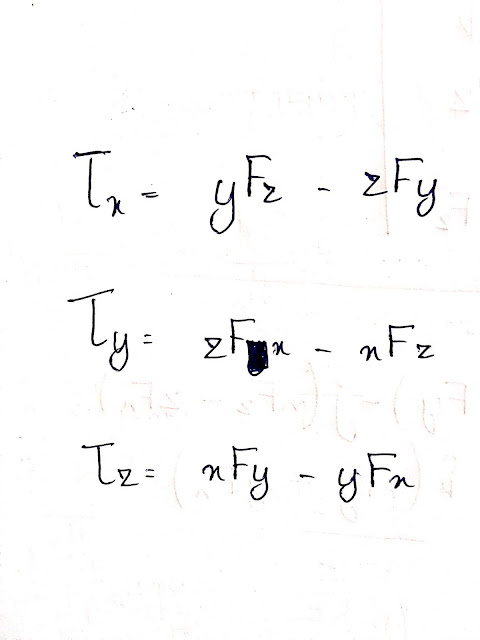 τx = yFz - zFy
τy = zFx - xFz
τz = xFy - yFx